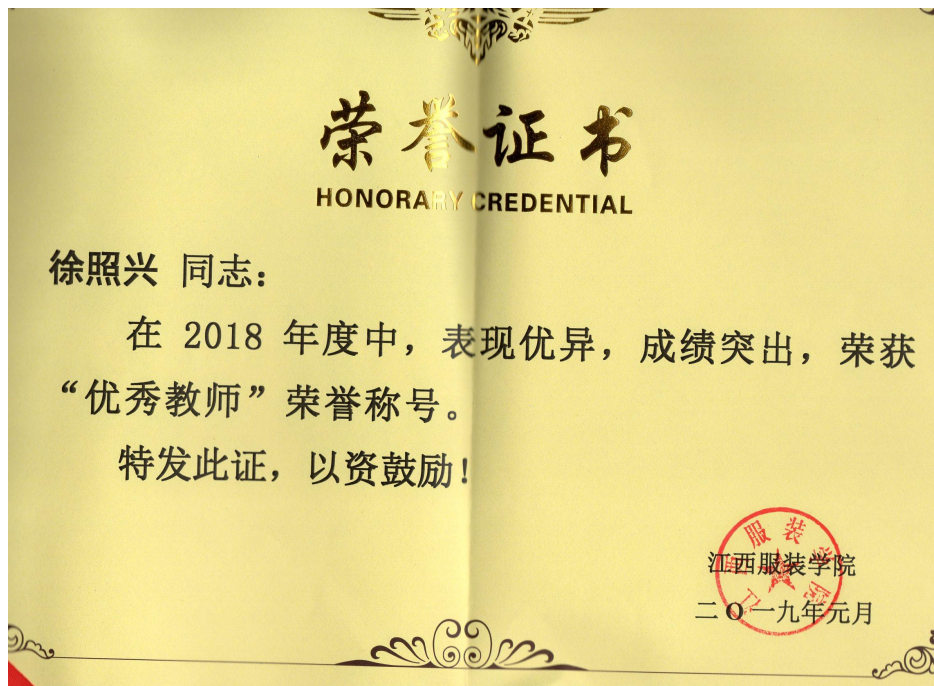 荣誉证书
HONORARY CREDENTIAL
徐照兴 同志：
在 2018 年度中，表现优异，成绩突出，荣获
“优秀教师”荣誉称号。
特发此证，以资鼓励！
江西服装学院
江西服装学院
二〇一九年元月